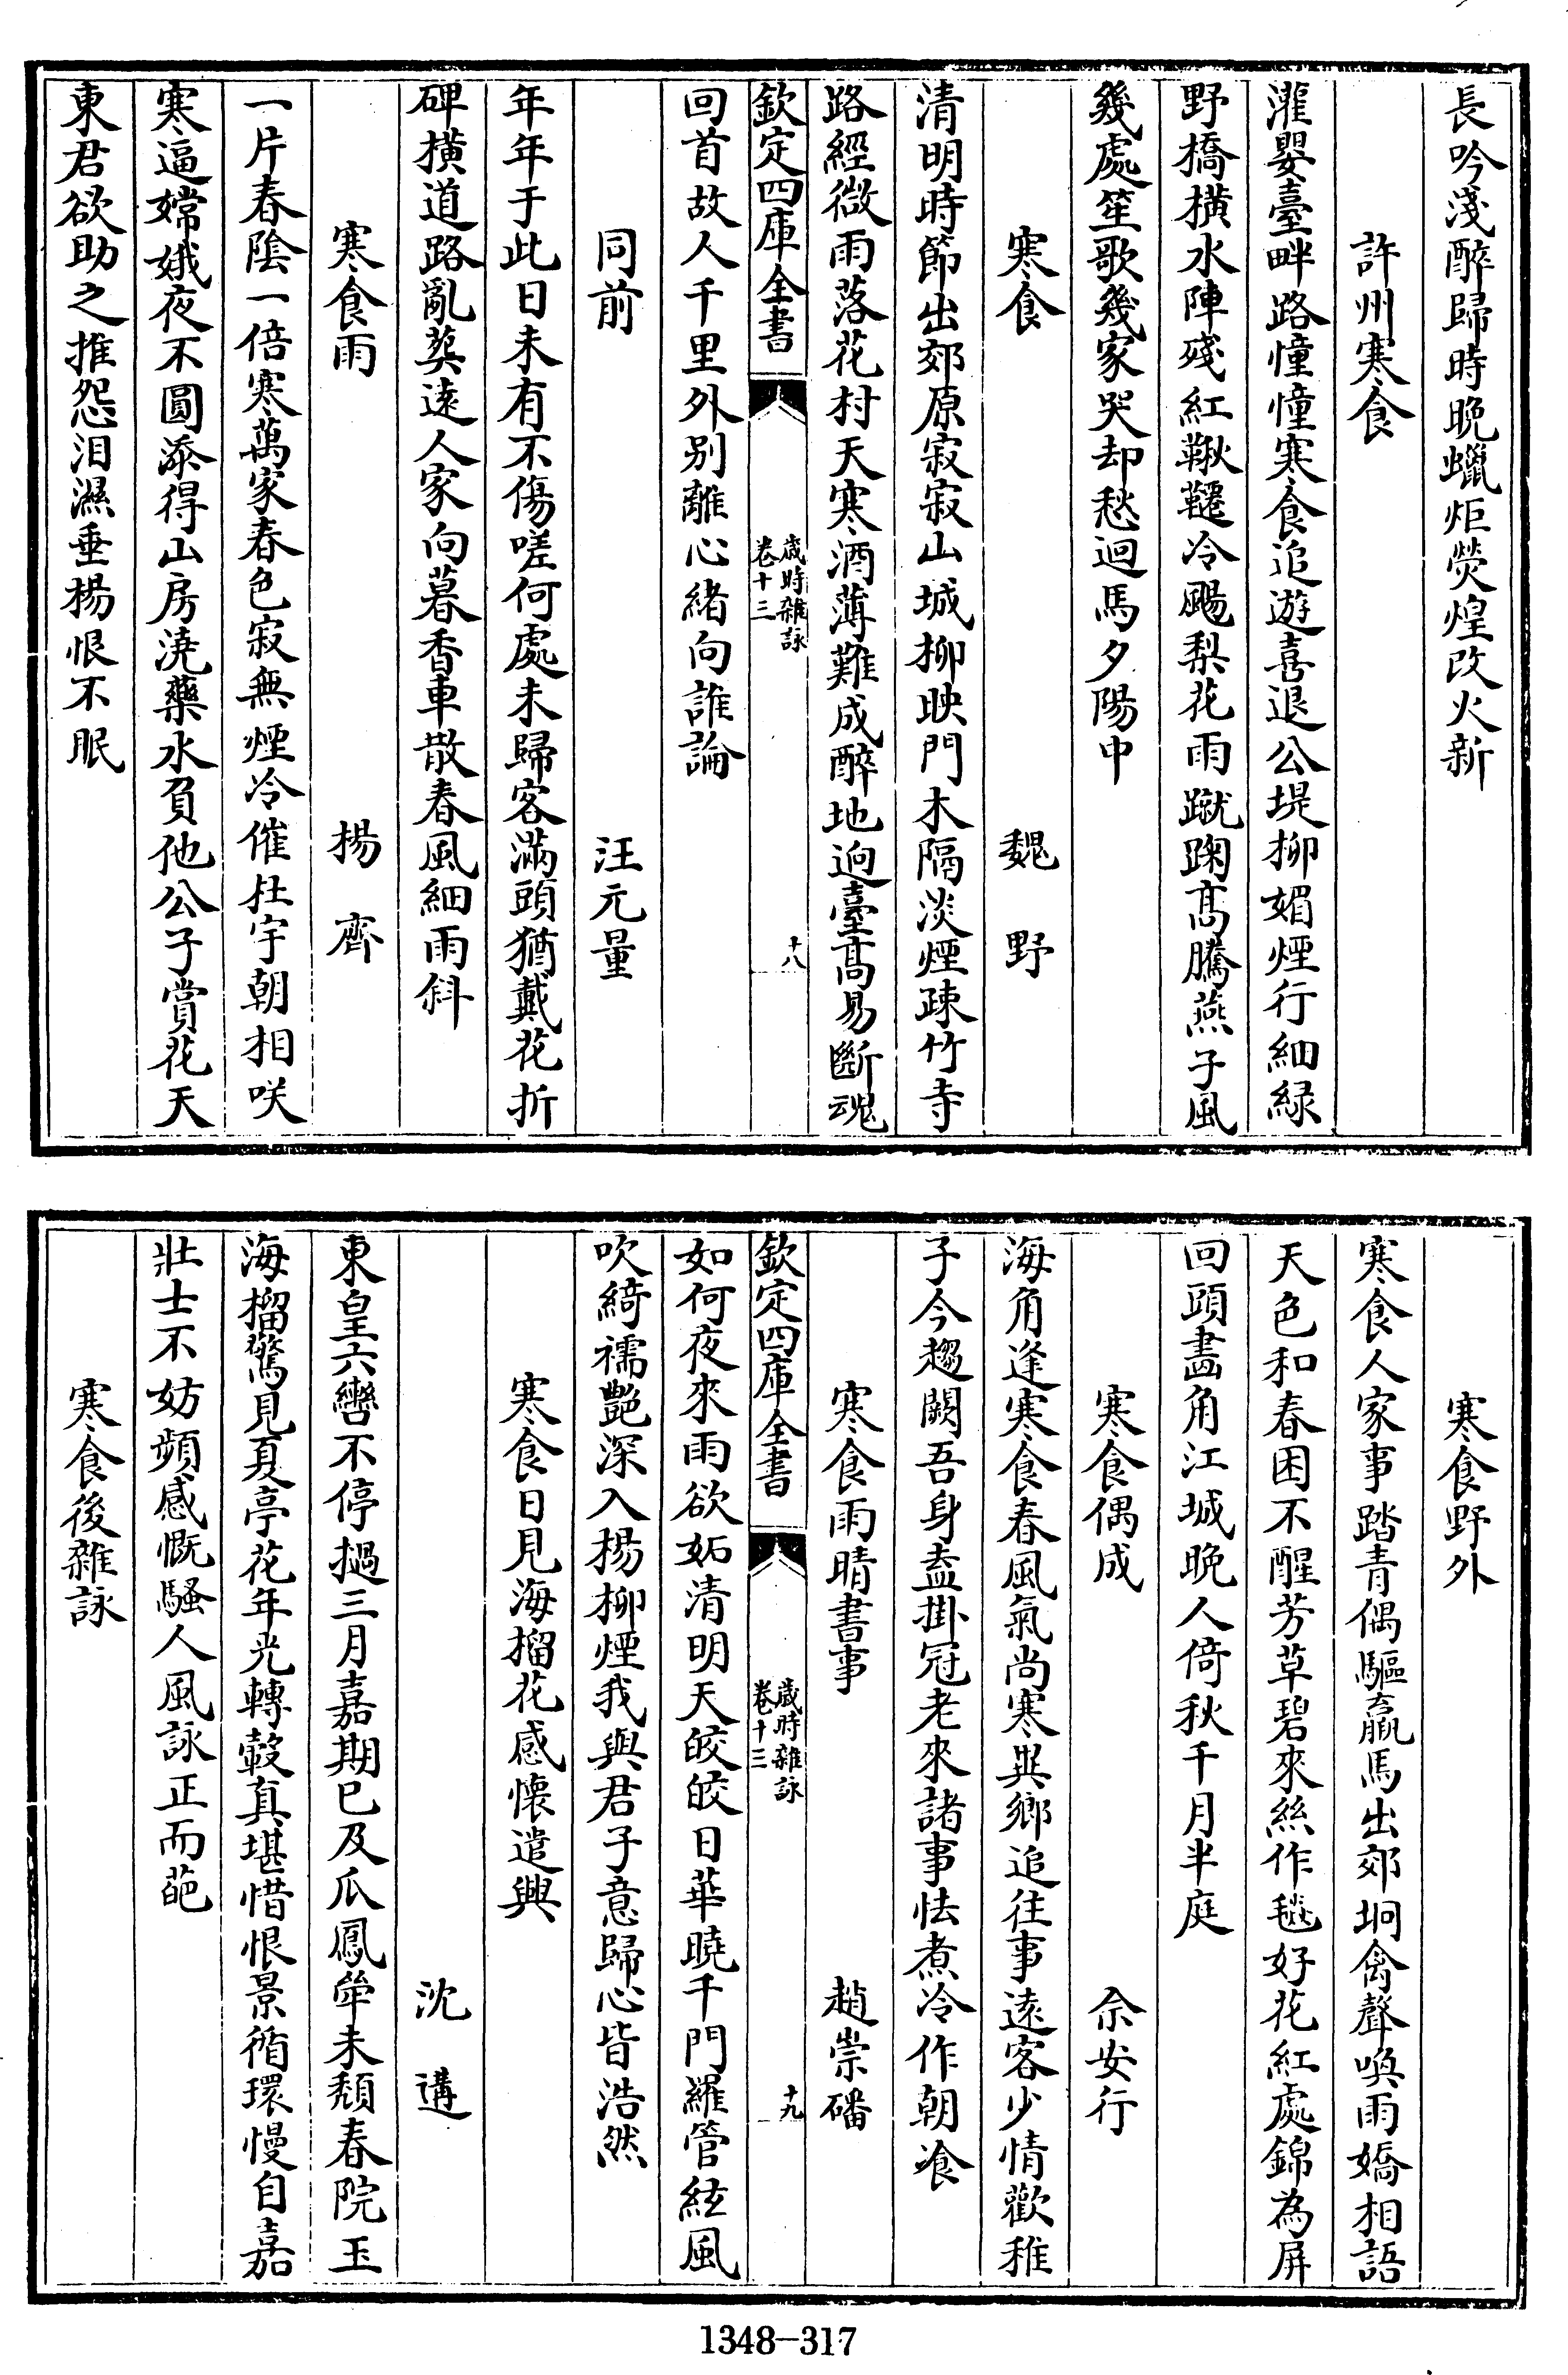 長吟淺醉歸時晚蠟炬熒煌改火新
許州寒食
灌嬰臺畔路憧憧寒食追遊喜退公堤柳媚煙行細緑
野橋横水陣殘紅鞦韆冷颺梨花雨蹴踘髙騰燕子風
幾處笙歌幾家哭却愁迴馬夕陽中
寒食 魏野
清明時節出郊原寂寂山城柳映門木隔淡煙疎竹寺
路經微雨落花村天寒酒薄難成醉地逈臺髙易斷魂
欽定四庫全書 歲時雜詠 卷十三 十八
回首故人千里外别離心緒向誰論
同前 汪元量
年年于此日未有不傷嗟何處未歸客滿頭猶戴花折
碑横道路亂塟遠人家向暮香車散春風細雨斜
寒食雨 楊齊
一片春陰一倍寒萬家春色寂無煙冷催杜宇朝相咲
寒逼嫦娥夜不圓添得山房澆藥水負他公子賞花天
東君欲助之推怨泪濕垂楊恨不眠
寒食野外
寒食人家事踏青偶驅羸馬出郊坰禽聲喚雨嬌相語
天色和春困不醒芳草碧來絲作毯好花紅處錦為屏
回頭畵角江城晩人倚秋千月半庭
寒食偶成 佘安行
海角逢寒食春風氣尚寒異鄉追往事遠客少情歡稚
子今趨闕吾身盍掛冠老來諸事怯煮冷作朝飡
寒食雨晴書事 趙崇磻
欽定四庫全書 歲時雜詠 卷十三 十九
如何夜來雨欲妬清明天皎皎日華曉千門羅管絃風
吹綺襦艶深入楊柳煙我與君子意歸心皆浩然
寒食日見海榴花感懷遣興
沈遘
東皇六轡不停撾三月嘉期已及瓜鳳筆未頹春院玉
海榴驚見夏亭花年光轉轂真堪惜恨景循環慢自嘉
壯士不妨頻感慨騷人風詠正而葩
寒食後雜詠
1348-317